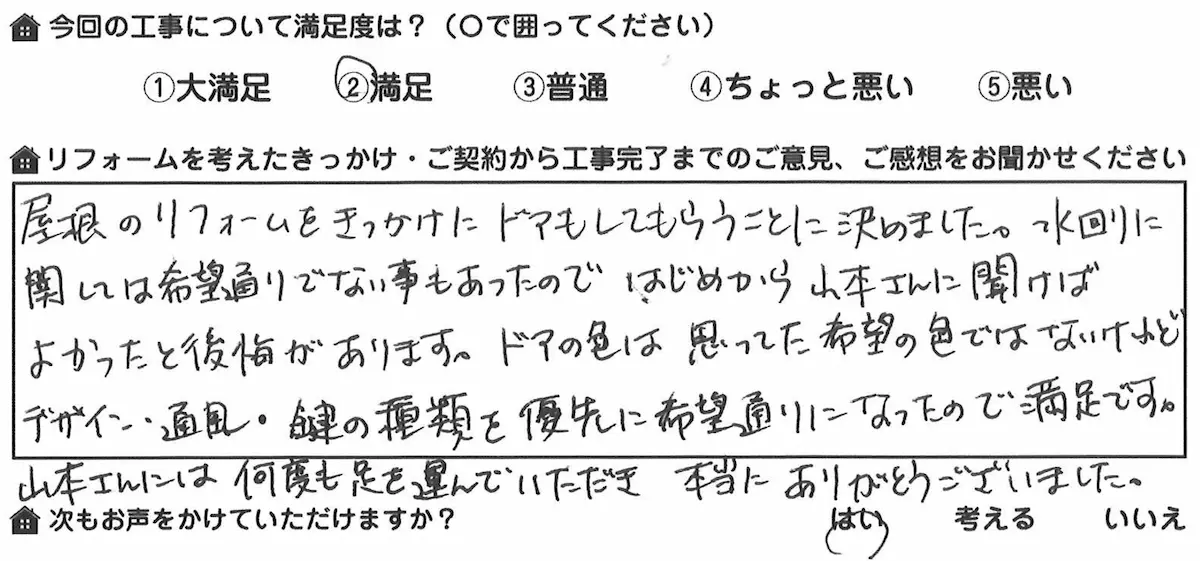 今回の工事について満足度は？（〇で囲ってください）
①大満足 ②満足 ③普通 ④ちょっと悪い ⑤悪い
リフォームを考えたきっかけ・ご契約から工事完了までのご意見、ご感想をお聞かせください
屋根のリフォームをきっかけにドアもしてもらうことに決めました。水回りに
関しては希望通りでない事もあったのではじめから山本さんに聞けば
よかったと後悔があります。ドアの色は思ってた希望の色ではないけれど
デザイン・通風・鍵の種類を優先に希望通りになったので満足です。
山本さんには何度も足を運んでいただき 本当にありがとうございました。
次もお声をかけていただけますか？ はい 考える いいえ